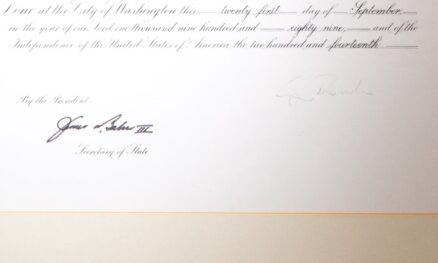 Done at the City of Washington this twenty first day of September
in the year of our Lord one thousand nine hundred and eighty nine, and of the
Independence of the United States of America the two hundred and fourteenth
By the President:
James A. Baker III
Secretary of State